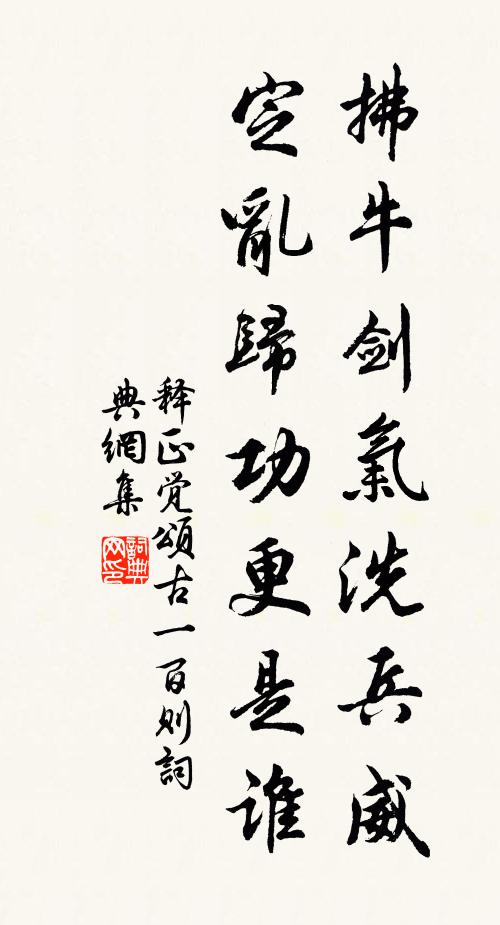 拂牛剑氣洗兵威
定亂歸功更是谁
释正觉頌古一百则詞
典網集
詞典网印